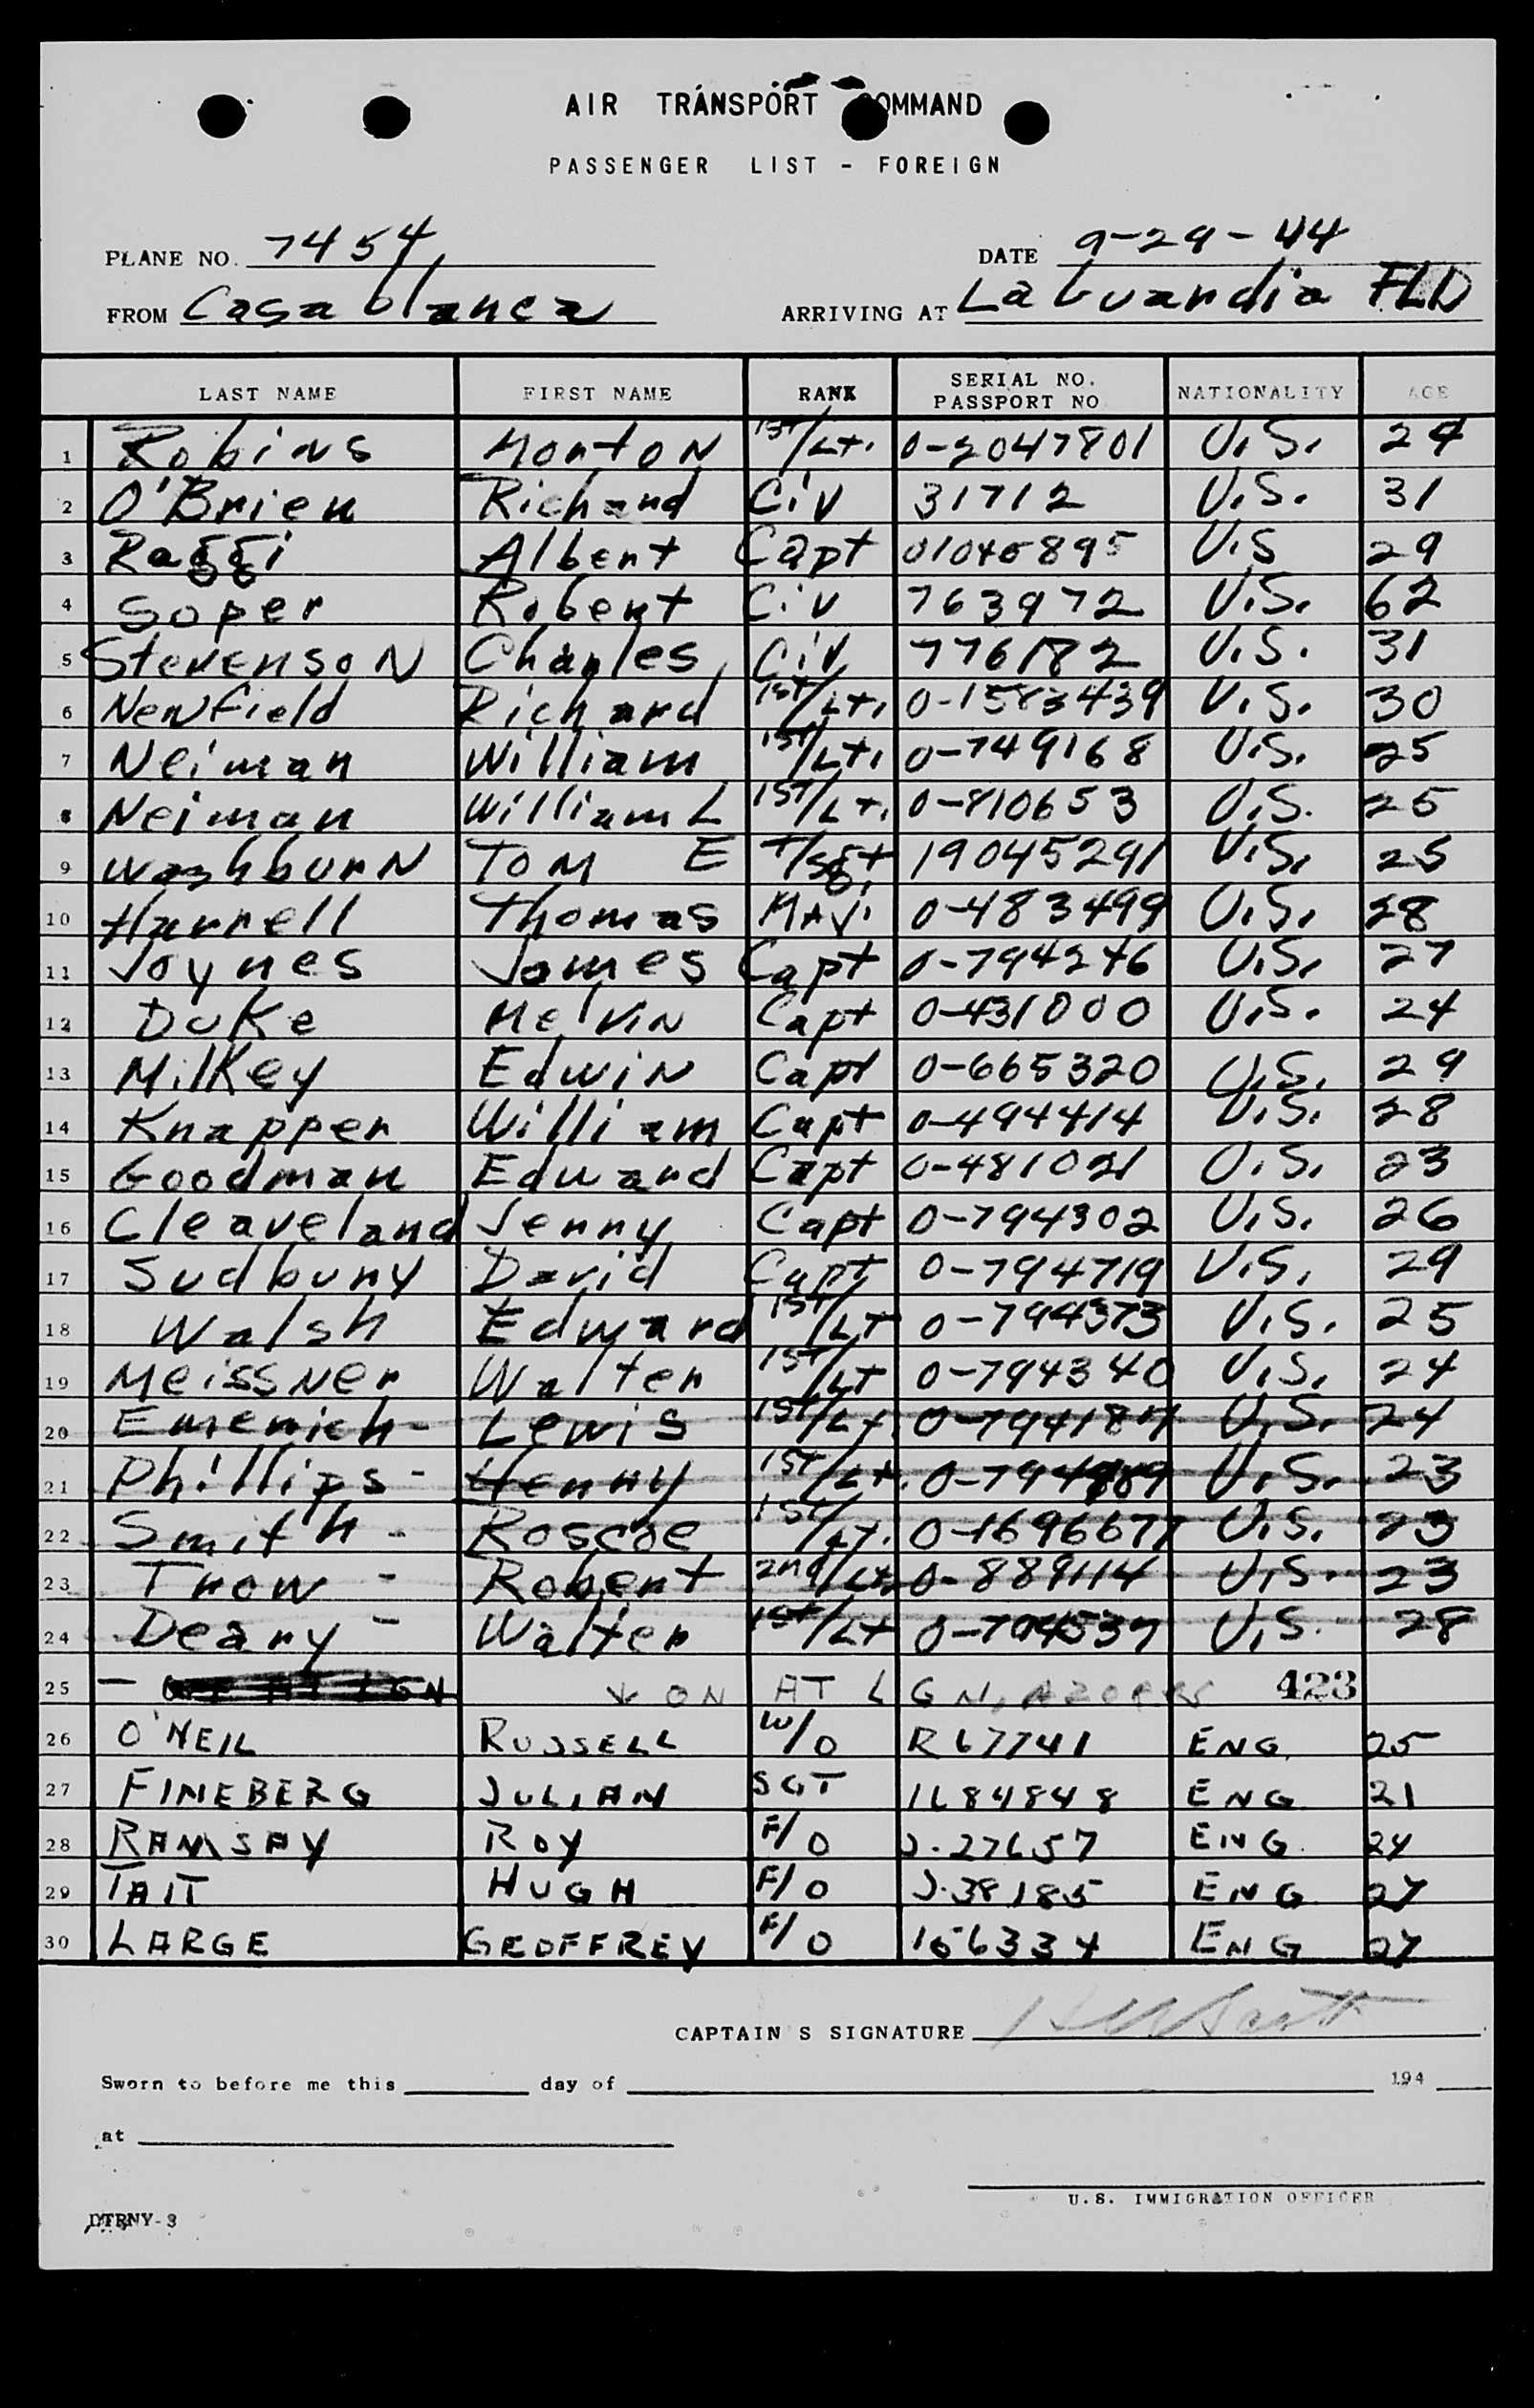 AIR TRANSPORT COMMAND
PASSENGER LIST - FOREIGN
PLANE NO. 7454 DATE 9-29-44
FROM Casablanca ARRIVING AT LaGuardia FLD
LAST NAME FIRST NAME RANK SERIAL NO. PASSPORT NO NATIONALITY AGE
1 Robins Morton 1st/Lt. 0-2047801 U.S. 24
2 O'Brien Richard Civ 31712 U.S. 31
3 Raggi Albert Capt 01046895 U.S 29
4 Soper Robert Civ 763972 U.S. 62
5 Stevenson Charles Civ 776182 U.S. 31
6 Newfield Richard 1st/Lt. 0-1583439 U.S. 30
7 Neiman William 1st/Lt. 0-749168 U.S. 25
8 Neiman William L 1st/Lt. 0-810653 U.S. 25
9 Washburn Tom E T/Sgt. 19045291 U.S. 25
10 Harrell Thomas MAJ. 0-483499 U.S. 28
11 Joynes James Capt 0-794246 U.S. 27
12 Duke Melvin Capt 0-431000 U.S. 24
13 Milkey Edwin Capt 0-665320 U.S. 29
14 Knapper William Capt 0-494414 U.S. 28
15 Goodman Edward Capt 0-481021 U.S. 23
16 Cleaveland Jerry Capt 0-794302 U.S. 26
17 Sudbury David Capt 0-794719 U.S. 29
18 Walsh Edward 1st/Lt 0-794373 U.S. 25
19 Meissner Walter 1st/Lt 0-794340 U.S. 24
20 Emerich - Lewis 1st/Lt. U.S. 24
21 Phillips - Henry 1st/Lt. U.S. 23
22 Smith - Roscoe 1st/Lt. 0-1696677 U.S. 23
23 Trow - Robert 2nd/Lt. 0-889114 U.S. 23
24 Deary - Walter 1st/Lt U.S. 28
25 - ↓ ON AT LGN, AZORES 423
26 O'NEIL RUSSELL W/O R67741 ENG. 25
27 FINEBERG JULIAN SGT 1684848 ENG 21
28 RAMSAY ROY F/O J.27657 ENG. 24
29 TAIT HUGH F/O J.38185 ENG 27
30 LARGE GEOFFREY F/O 156334 ENG 27
CAPTAIN S SIGNATURE
Sworn to before me this day of 194
at
U.S. IMMIGRATION OFFICER
DTRNY-3